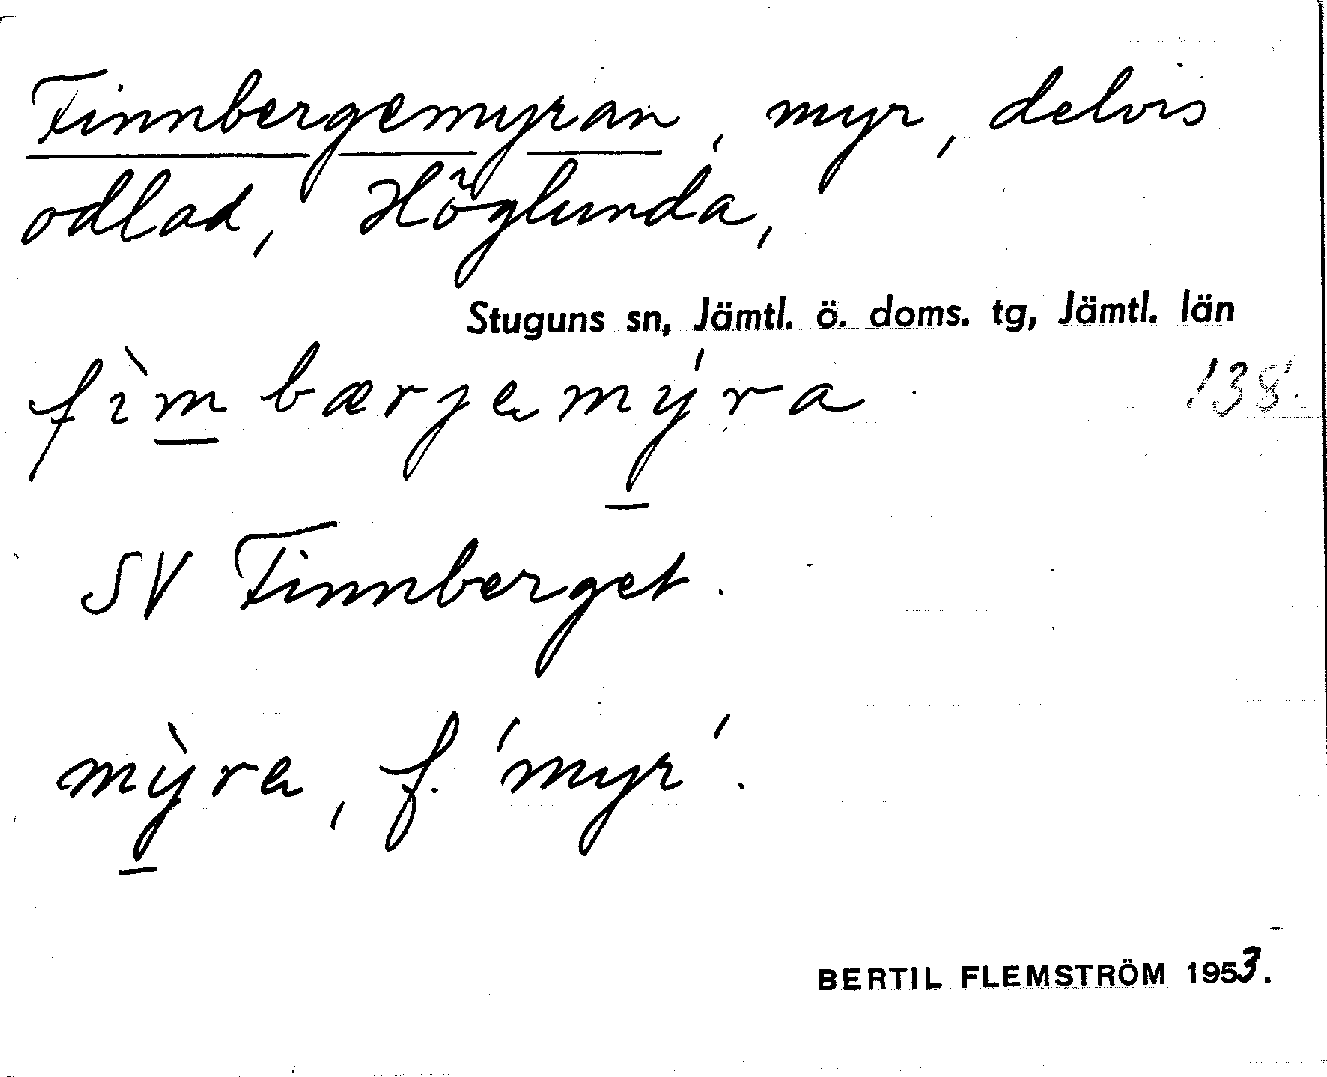 Finnbergemyran, myr, delvis
odlad, Höglunda,
Stuguns sn, Jämtl. ö. doms. tg, Jämtl. län
fìm̲bærjemý̲ra
138.
SV Finnberget.
mỳ̲ra, f. 'myr'.
BERTIL FLEMSTRÖM 1953.